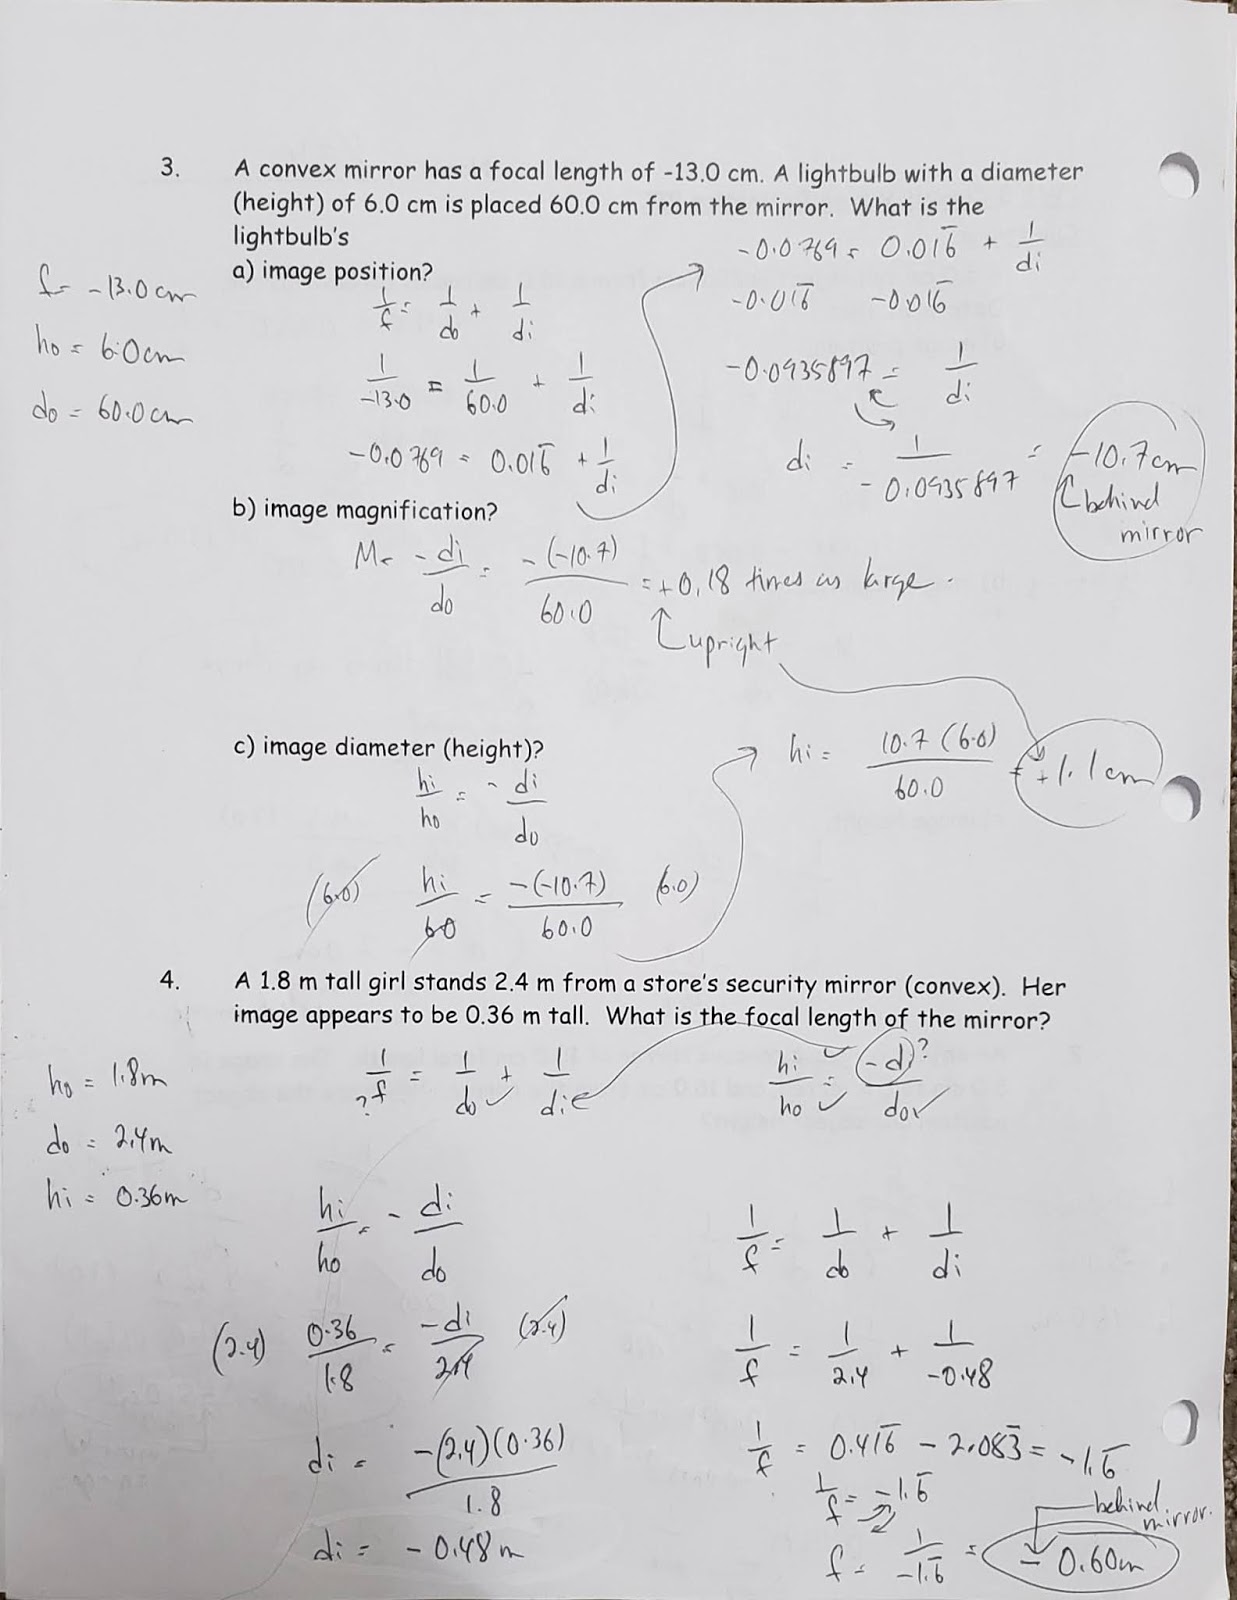 3. A convex mirror has a focal length of -13.0 cm. A lightbulb with a diameter
(height) of 6.0 cm is placed 60.0 cm from the mirror. What is the
lightbulb's
a) image position?
f = -13.0 cm
ho = 6.0 cm
do = 60.0 cm
1/f = 1/do + 1/di
1/-13.0 = 1/60.0 + 1/di
-0.0769 = 0.016̅ + 1/di
-0.0769 = 0.016̅ + 1/di
-0.016̅ -0.016̅
-0.0935897 = 1/di
di = 1/-0.0935897 = -10.7 cm
behind
mirror
b) image magnification?
M = -di/do = -(-10.7)/60.0 = +0.18 times as large.
upright
c) image diameter (height)?
hi/ho = -di/do
(6.0) hi/6.0 = -(-10.7)/60.0 (6.0)
hi = 10.7 (6.0)/60.0 = +1.1 cm
4. A 1.8 m tall girl stands 2.4 m from a store's security mirror (convex). Her
image appears to be 0.36 m tall. What is the focal length of the mirror?
ho = 1.8m
do = 2.4m
hi = 0.36m
?1/f = 1/do✓ + 1/di
hi✓/ho✓ = -di?/do✓
hi/ho = -di/do
(2.4) 0.36/1.8 = -di/2.4 (2.4)
di = -(2.4)(0.36)/1.8
di = -0.48 m
1/f = 1/do + 1/di
1/f = 1/2.4 + 1/-0.48
1/f = 0.416̅ - 2.083̅ = -1.6̅
1/f = -1.6̅
behind
mirror.
f = 1/-1.6̅ = -0.60m